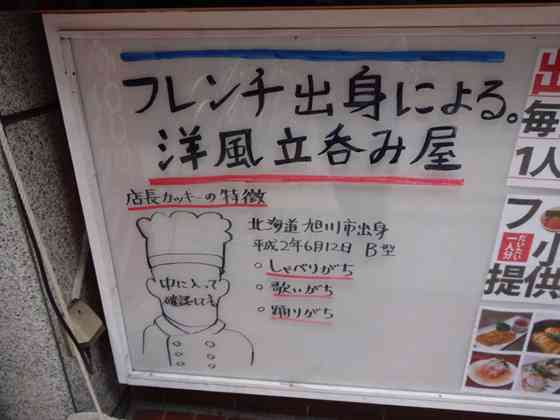 フレンチ出身による。
洋風立呑み屋
店長カッキーの特徴
北海道旭川市出身
平成2年6月12日 B型
○しゃべりがち
○歌いがち
○踊りがち
中に入って
確認してネ
出
毎
1人
フ
だいたい
一人分
小
提供